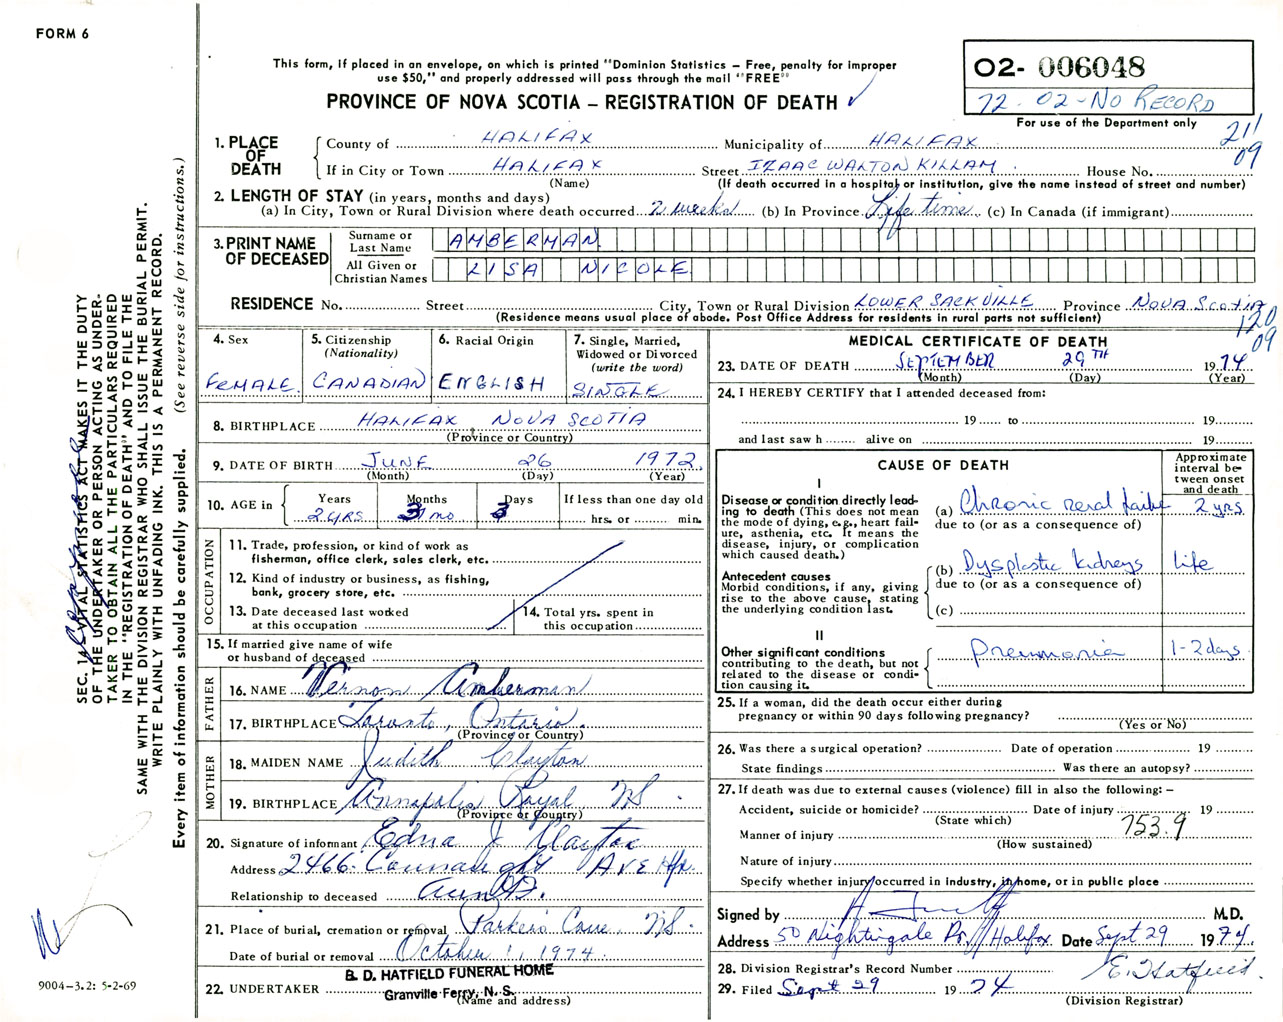 FORM 6
This form, if placed in an envelope, on which is printed "Dominion Statistics – Free, penalty for improper
use $50," and properly addressed will pass through the mail "FREE"
PROVINCE OF NOVA SCOTIA – REGISTRATION OF DEATH
02- 006048
72-02-NO RECORD
For use of the Department only
211
09
1. PLACE OF DEATH
County of HALIFAX Municipality of HALIFAX
If in City or Town HALIFAX Street IZAAC WALTON KILLAM House No.
(Name) (If death occurred in a hospital or institution, give the name instead of street and number)
2. LENGTH OF STAY (in years, months and days)
(a) In City, Town or Rural Division where death occurred 2 weeks (b) In Province Life time (c) In Canada (if immigrant)
3. PRINT NAME OF DECEASED
Surname or Last Name AMBERMAN
All Given or Christian Names LISA NICOLE
RESIDENCE No. Street City, Town or Rural Division LOWER SACKVILLE Province NOVA SCOTIA
(Residence means usual place of abode. Post Office Address for residents in rural parts not sufficient)
120
09
4. Sex
FEMALE
5. Citizenship
(Nationality)
CANADIAN
6. Racial Origin
ENGLISH
7. Single, Married,
Widowed or Divorced
(write the word)
SINGLE
8. BIRTHPLACE HALIFAX, NOVA SCOTIA
(Province or Country)
9. DATE OF BIRTH JUNE 26 1972
(Month) (Day) (Year)
10. AGE in
Years Months Days If less than one day old
2 YRS 3 mo 3 hrs. or min.
OCCUPATION
11. Trade, profession, or kind of work as
fisherman, office clerk, sales clerk, etc.
12. Kind of industry or business, as fishing,
bank, grocery store, etc.
13. Date deceased last worked
at this occupation
14. Total yrs. spent in
this occupation
15. If married give name of wife
or husband of deceased
FATHER
16. NAME Vernon Amberman
17. BIRTHPLACE Toronto, Ontario.
(Province or Country)
MOTHER
18. MAIDEN NAME Judith Clayton
19. BIRTHPLACE Annapolis Royal NS.
(Province or Country)
20. Signature of informant Edna J Clayton
Address 2466 Connaught AVE Hfx.
Relationship to deceased Aunt
21. Place of burial, cremation or removal Parkers Cove, NS.
Date of burial or removal October 1, 1974
B. D. HATFIELD FUNERAL HOME
22. UNDERTAKER Granville Ferry, N. S.
(Name and address)
MEDICAL CERTIFICATE OF DEATH
23. DATE OF DEATH SEPTEMBER 29TH 1974
(Month) (Day) (Year)
24. I HEREBY CERTIFY that I attended deceased from:
19 to 19
and last saw h alive on 19
CAUSE OF DEATH
Approximate
interval be-
tween onset
and death
I
Disease or condition directly lead-
ing to death (This does not mean
the mode of dying, e.g., heart fail-
ure, asthenia, etc. It means the
disease, injury, or complication
which caused death.)
(a) Chronic renal failure 2 yrs.
due to (or as a consequence of)
Antecedent causes
Morbid conditions, if any, giving
rise to the above cause, stating
the underlying condition last.
(b) Dysplastic kidneys Life
due to (or as a consequence of)
(c)
II
Other significant conditions
contributing to the death, but not
related to the disease or condi-
tion causing it.
Pneumonia 1-2 days
25. If a woman, did the death occur either during
pregnancy or within 90 days following pregnancy?
(Yes or No)
26. Was there a surgical operation? Date of operation 19
State findings Was there an autopsy?
27. If death was due to external causes (violence) fill in also the following: –
Accident, suicide or homicide? Date of injury 19
(State which)
753.9
Manner of injury
(How sustained)
Nature of injury
Specify whether injury occurred in industry, in home, or in public place
Signed by M.D.
Address 50 Nightingale Dr. Halifax Date Sept 29 1974
28. Division Registrar's Record Number
E. Hatfield
29. Filed Sept 29 1974
(Division Registrar)
SEC. 14 VITAL STATISTICS ACT MAKES IT THE DUTY
OF THE UNDERTAKER OR PERSON ACTING AS UNDER-
TAKER TO OBTAIN ALL THE PARTICULARS REQUIRED
IN THE "REGISTRATION OF DEATH" AND TO FILE THE
SAME WITH THE DIVISION REGISTRAR WHO SHALL ISSUE THE BURIAL PERMIT.
WRITE PLAINLY WITH UNFADING INK. THIS IS A PERMANENT RECORD.
Every item of information should be carefully supplied. (See reverse side for instructions.)
9004-3.2: 5-2-69